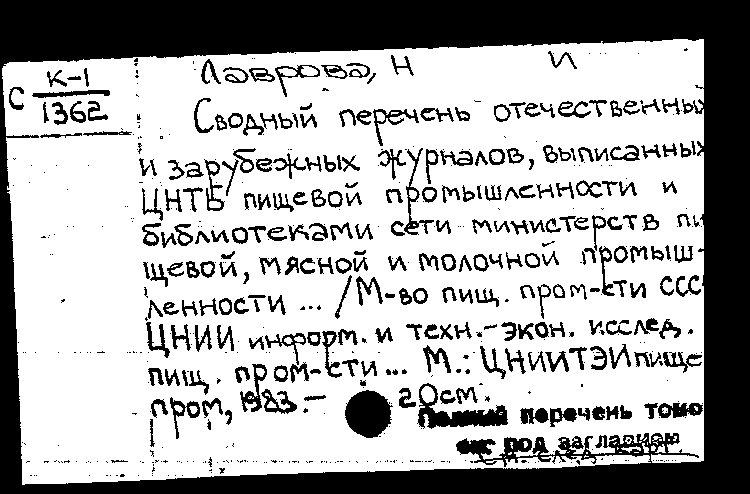 С К-1
1362
Лаврова, Н И
Сводный перечень отечественных
и зарубежных журналов, выписанных
ЦНТБ пищевой промышленности и
библиотеками сети министерств пи-
щевой, мясной и молочной промыш-
ленности ... / М-во пищ. пром-сти СССР
ЦНИИ информ. и техн.-экон. исслед.
пищ. пром-сти ... М.: ЦНИИТЭИпище-
пром, 1983.- 20см.
Полный перечень томо
см. под заглавием
См. след. карт.